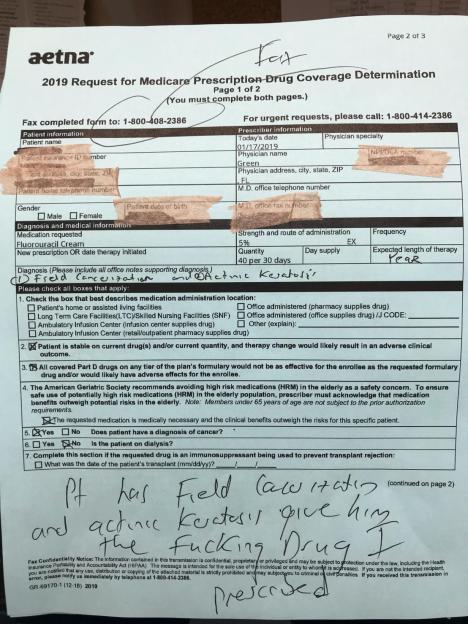 Page 2 of 3
Fax
aetna
2019 Request for Medicare Prescription Drug Coverage Determination
Page 1 of 2
(You must complete both pages.)
Fax completed form to: 1-800-408-2386 For urgent requests, please call: 1-800-414-2386
Patient information Prescriber information
Patient name Today's date Physician specialty
01/17/2019
Physician name
Green
Physician address, city, state, ZIP
FL
Patient home telephone number M.D. office telephone number
Gender Patient date of birth M.D. office fax number
Male Female
Diagnosis and medical information
Medication requested Strength and route of administration Frequency
Fluorouracil Cream 5% EX
New prescription OR date therapy initiated Quantity Day supply Expected length of therapy
40 per 30 days YEAR
Diagnosis (Please include all office notes supporting diagnosis)
(1) Field Cancerization and (2) Actinic Keratosis
Please check all boxes that apply:
1. Check the box that best describes medication administration location:
Patient's home or assisted living facilities Office administered (pharmacy supplies drug)
Long Term Care Facilities(LTC)/Skilled Nursing Facilities (SNF) Office administered (office supplies drug) / J CODE:
Ambulatory Infusion Center (infusion center supplies drug) Other (explain):
Ambulatory Infusion Center (retail/outpatient pharmacy supplies drug)
2. Patient is stable on current drug(s) and/or current quantity, and therapy change would likely result in an adverse clinical
outcome.
3. All covered Part D drugs on any tier of the plan's formulary would not be as effective for the enrollee as the requested formulary
drug and/or would likely have adverse effects for the enrollee.
4. The American Geriatric Society recommends avoiding high risk medications (HRM) in the elderly as a safety concern. To ensure
safe use of potentially high risk medications (HRM) in the elderly population, prescriber must acknowledge that medication
benefits outweigh potential risks in the elderly. Note: Members under 65 years of age are not subject to the prior authorization
requirements.
The requested medication is medically necessary and the clinical benefits outweigh the risks for this specific patient.
5. Yes No Does patient have a diagnosis of cancer?
6. Yes No Is the patient on dialysis?
7. Complete this section if the requested drug is an immunosuppressant being used to prevent transplant rejection:
What was the date of the patient's transplant (mm/dd/yy)? __/__/__
(continued on page 2)
Pt has Field Cancerization
and actinic Keratosis give him
the Fucking Drug I
prescribed
Fax Confidentiality Notice: The information contained in this transmission is confidential, proprietary or privileged and may be subject to protection under the law, including the Health
Insurance Portability and Accountability Act (HIPAA). The message is intended for the sole use of the individual or entity to whom it is addressed. If you are not the intended recipient,
you are notified that any use, distribution or copying of the attached material is strictly prohibited and may subject you to criminal or civil penalties. If you received this transmission in
error, please notify us immediately by telephone at 1-800-414-2386.
GR-69170-1 (12-18) 2019